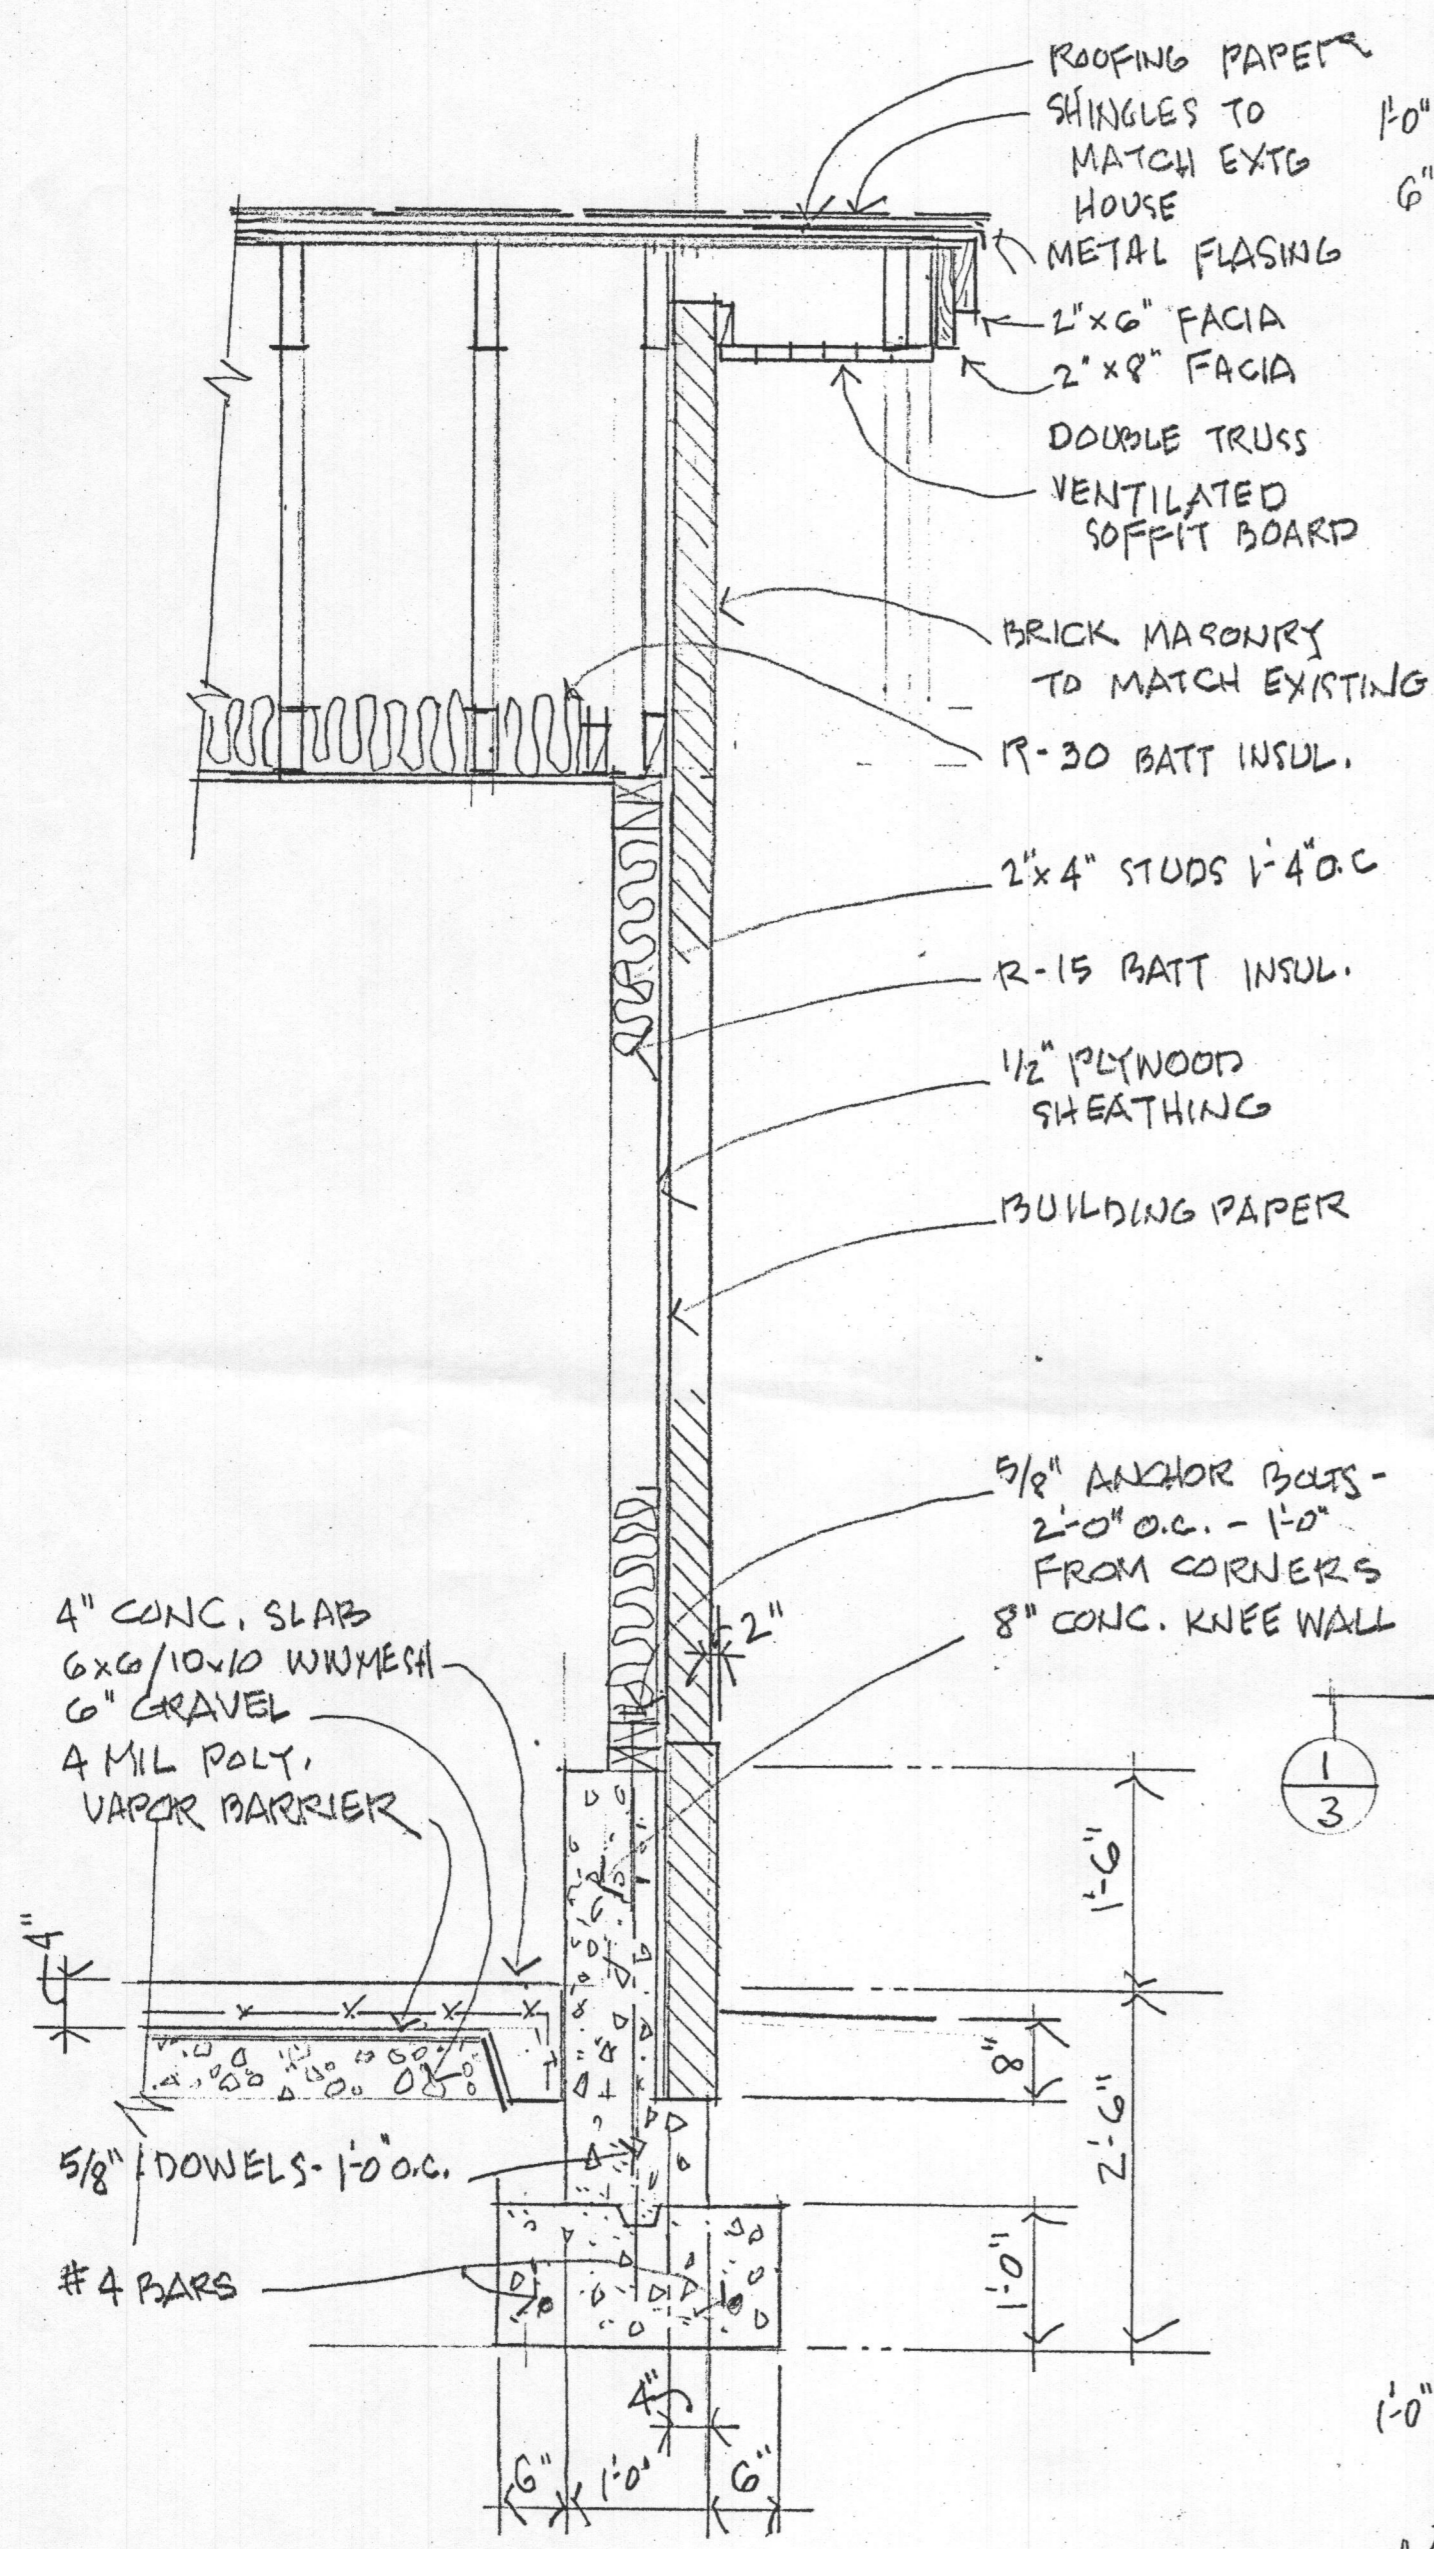 ROOFING PAPER
SHINGLES TO
MATCH EXTG
HOUSE
METAL FLASING
2"x6" FACIA
2"x8" FACIA
DOUBLE TRUSS
VENTILATED
SOFFIT BOARD
1'-0"
6"
BRICK MASONRY
TO MATCH EXISTING
R-30 BATT INSUL.
2"x4" STUDS 1'-4" O.C
R-15 BATT INSUL.
1/2" PLYWOOD
SHEATHING
BUILDING PAPER
5/8" ANCHOR BOLTS-
2'-0" O.C. - 1'-0"
FROM CORNERS
8" CONC. KNEE WALL
2"
4" CONC. SLAB
6x6/10x10 WWMESH
6" GRAVEL
4 MIL POLY.
VAPOR BARRIER
1
3
1'-6"
4"
8"
2'-6"
5/8" DOWELS- 1'-0" O.C.
#4 BARS
1'-0"
4"
6"
1'-0"
6"
1'-0"